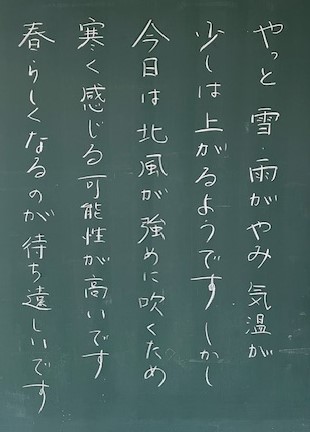 やっと 雪・雨がやみ 気温が
少しは上がるようです しかし
今日は北風が強めに吹くため
寒く感じる可能性が高いです
春らしくなるのが待ち遠しいです